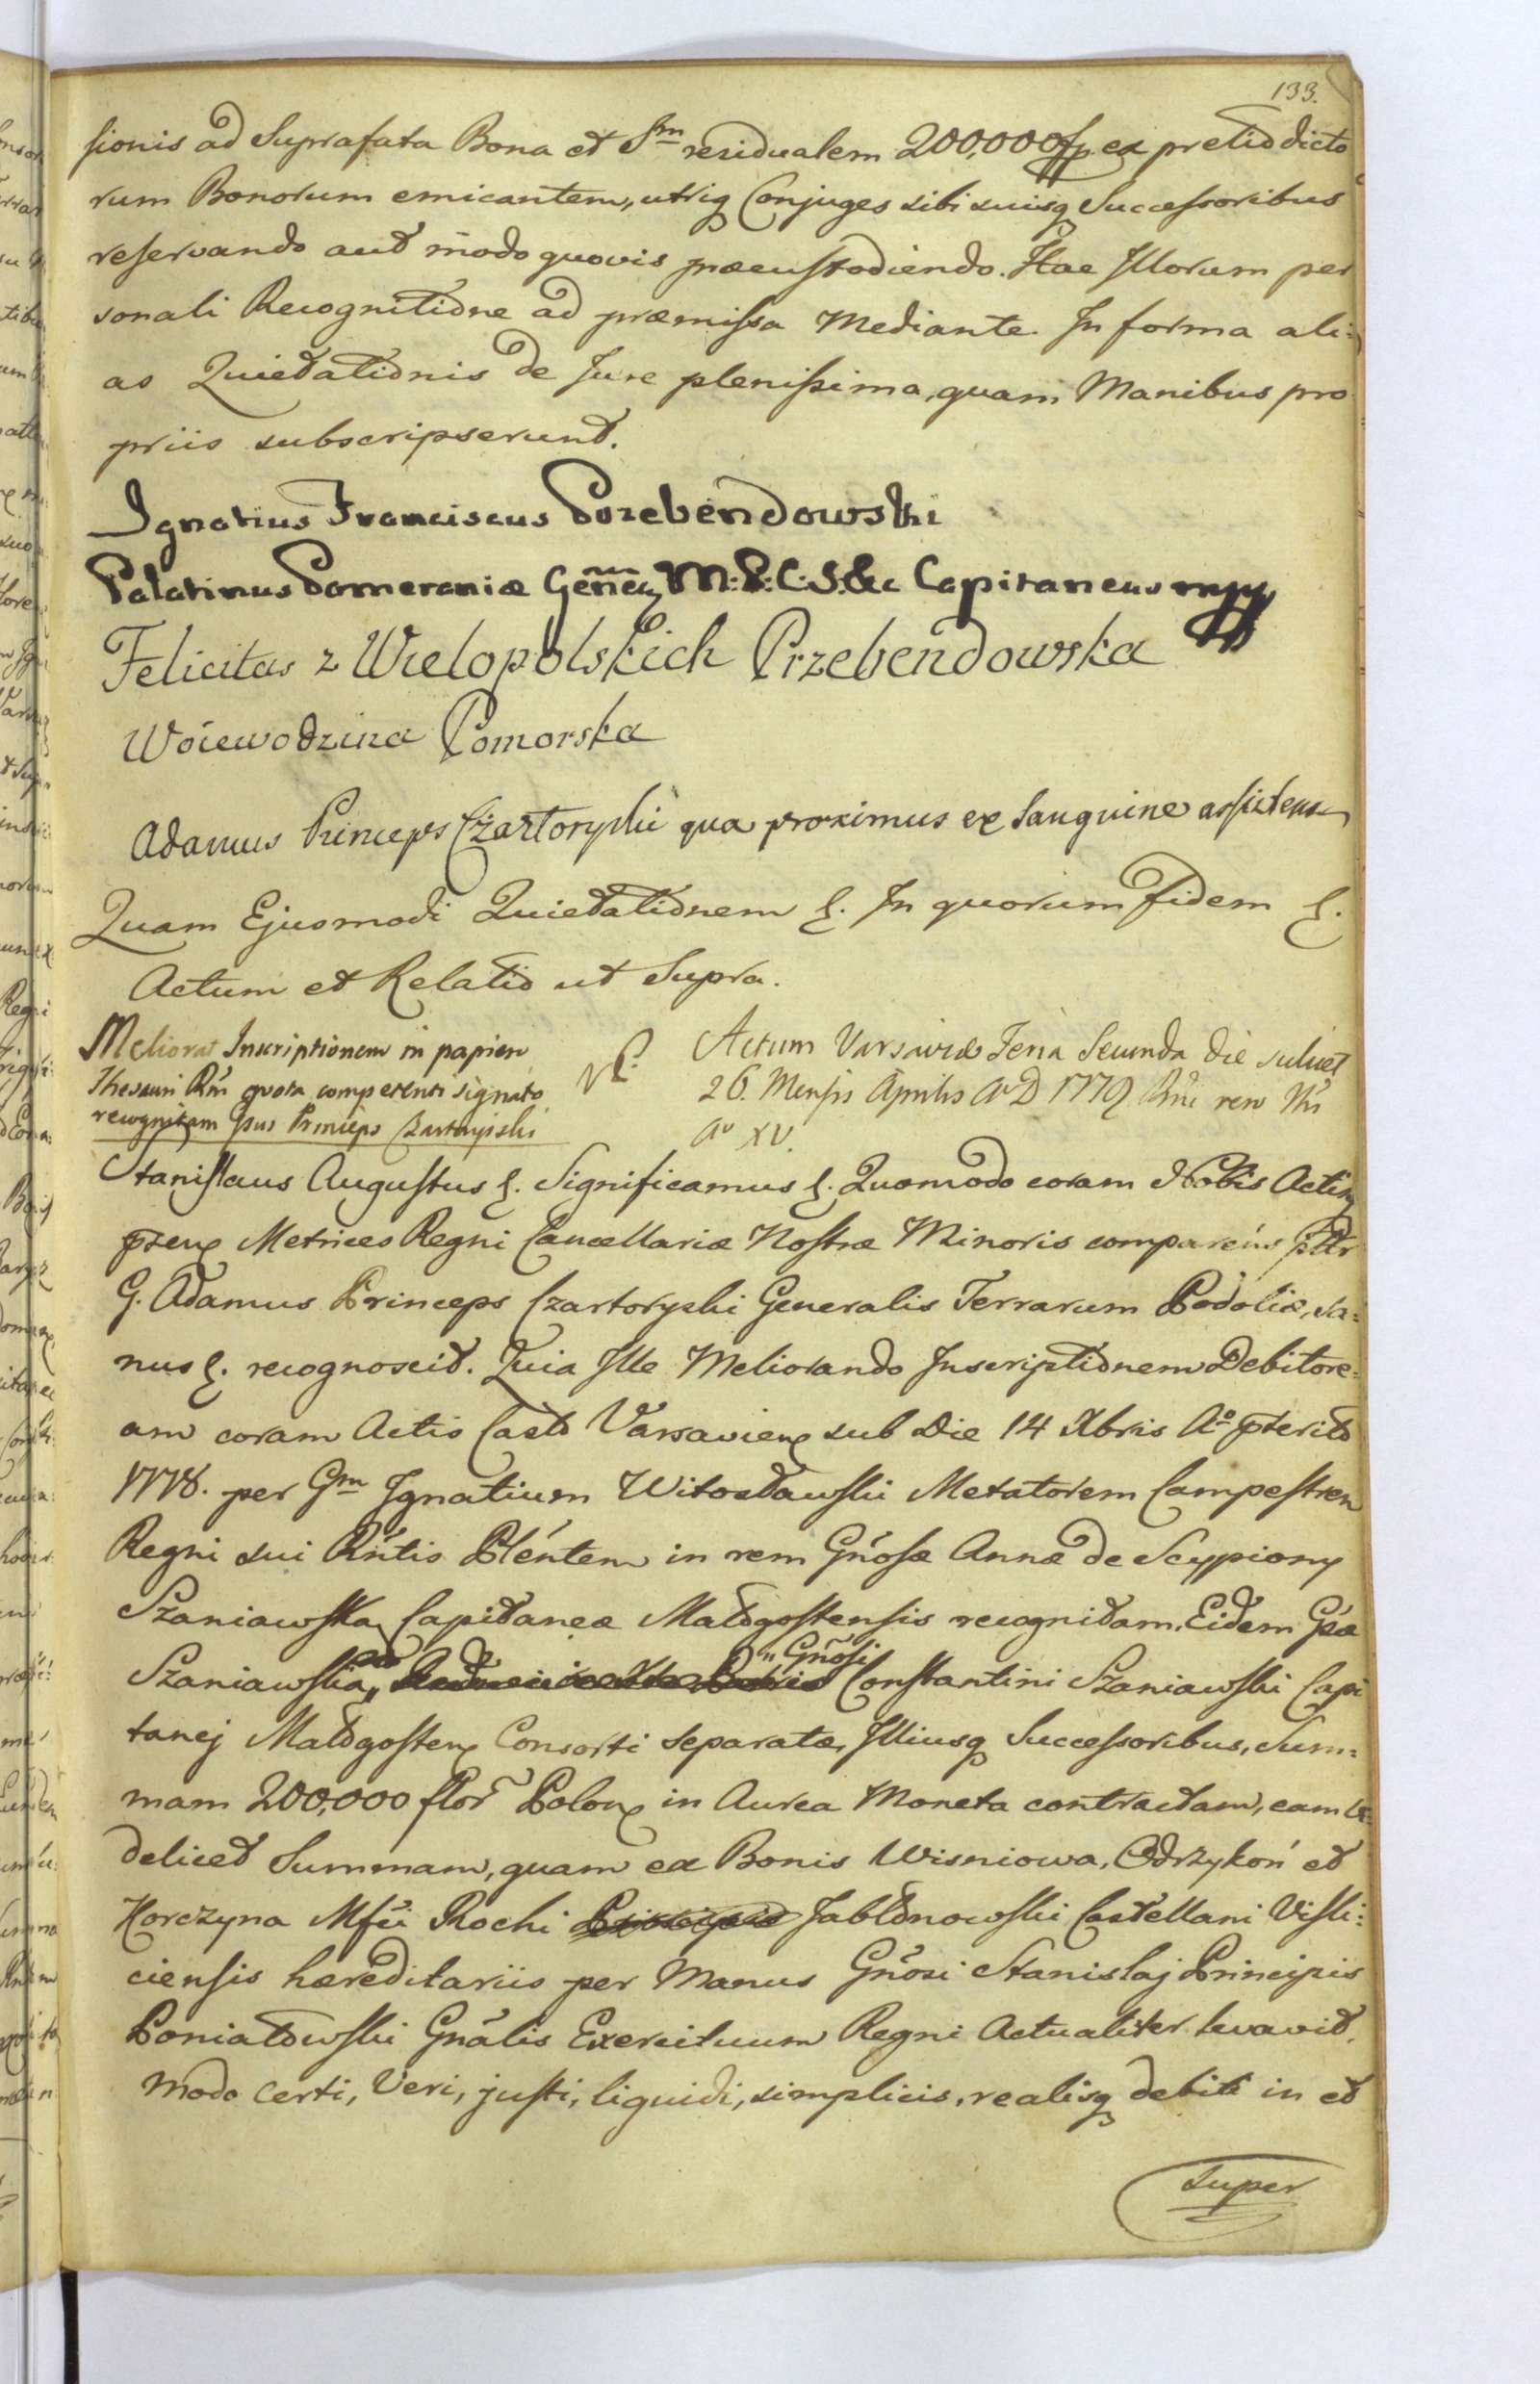 133.
sionis ad Suprafata Bona et Sm residualem 200,000 fp. ex pretio dicto
rum Bonorum emicantem, utriq Conjuges sibi suisq Successoribus
reservando aut modo quovis præcustodiendo. Hac Illorum per
sonali Recognitione ad præmissa Mediante. In forma ali=
as Quietationis de Jure plenissima, quam Manibus pro
priis subscripserunt.
Ignatius Franciscus Przebendowski
Palatinus Pomeraniæ Gēnēq M:P:C:S.&c Capitaneus mpp
Felicitas z Wielopolskich Przebendowska
Woiewodzina Pomorska
Adamus Princeps Czartoryski qua proximus ex Sanguine assistens
Quam Ejusmodi Quietationem &. In quorum Fidem &.
Actum et Relatio ut Supra.
Meliorat Inscriptionem in papiero
Thesauri Rni quota competenti signato
recognitam Gsus Princeps Czartoryiski
Actum Varsaviæ Feria Secunda die scilicet
26. Mensis Aprilis A D 1779 Rni vero Nri
Ao XV.
Stanislaus Augustus &. Significamus &. Quomodo coram Nobis Actisq
pzenq Metrices Regni Cancellariæ Nostræ Minoris comparens pltr
G. Adamus Princeps Czartoryski Generalis Terrarum Podoliæ, sa=
nus &. recognoscit. Quia Ille Meliorando Inscriptionem Debitore=
am coram Actis Castr Varsavienq sub Die 14 Xbris Ao pterito
1778. per Gm Ignatium Witosławski Metatorem Campestrem
Regni sui Rntis Plentem in rem Gnosæ Annæ de Scypiony
Szaniawska Capitaneæ Małogostensis recognitam, Eidem Gsæ
Szaniawska, Gnosi Constantini Szaniawski Capi
tanej Małogostenq Consorti separatæ, Illiusq Successoribus, Sum=
mam 200,000 flor Polonq in Aurea Moneta contractam, eam vi=
delicet Summam, quam ex Bonis Wisniowa, Odrzykoń et
Korczyna Mfci Rochi Jabłonowski Castellani Visli=
ciensis hæreditariis per Manus Gnosi Stanislaj Principis
Poniatowski Gnalis Exercituum Regni Actualiter levavit,
modo certi, Veri, justi, liquidi, simplicis, realisq debiti in et
super